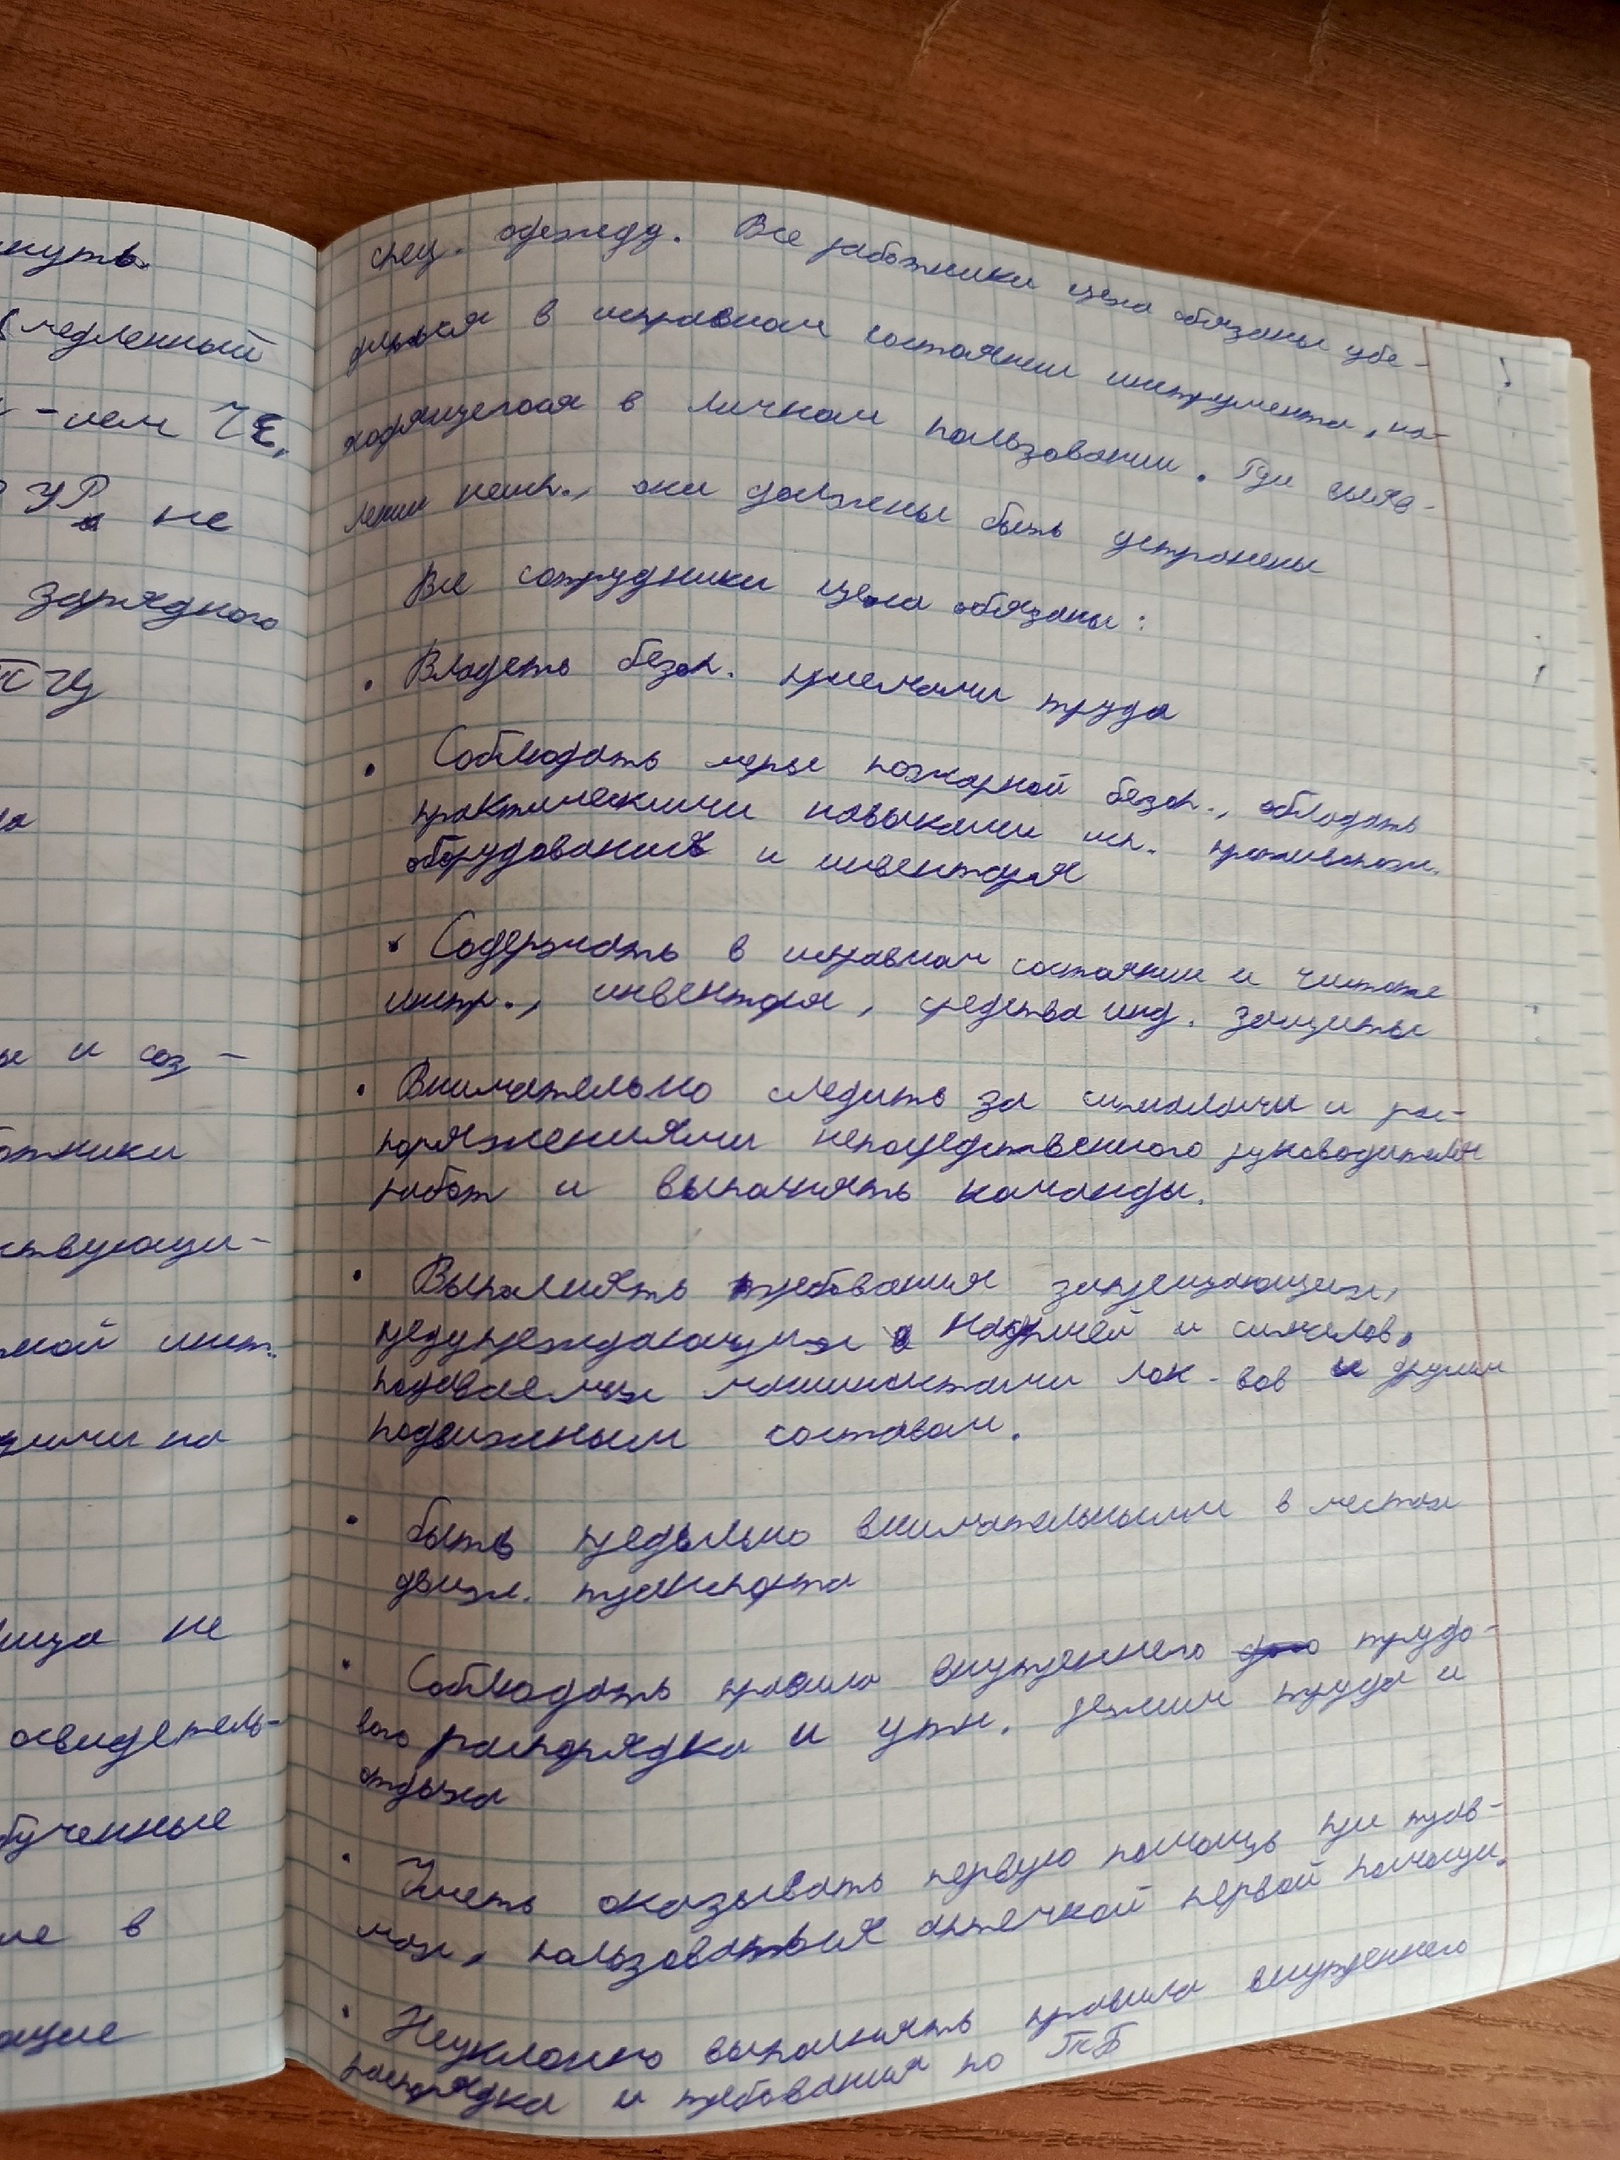 нуть
медленный
-лем ЧЕ,
УР, не
зарядного
ПСЧЦ
и соз-
отники
ствующи-
мой инст.
ними на
лица не
освидетель-
бученные
ие в
ющие
спец. одежду. Все работники цеха обязаны убе-
диться в исправном состоянии инструмента, на-
ходящегося в личном пользовании. При выяв-
лении неисп., они должны быть устронены
Все сотрудники цеха обязаны:
• Владеть безоп. приемами труда
• Соблюдать меры пожарной безоп., обладать
практическими навыками исп. противопож.
оборудования и инвентаря
• Содержать в исправном состоянии и чистоте
инстр., инвентаря, средства инд. защиты
• Внимательно следить за сигналами и рас-
поряжениями непосредственного руководителя
работ и выполнять команды.
• Выполнять требования запрещающих,
предупреждающих надписей и сигналов,
подаваемых машинистами лок-вов и другим
подвижным составом.
• быть предельно внимательными в местах
движ. транспорта
• Соблюдать правила внутреннего трудо-
вого распорядка и утн. режим труда и
отдыха
• Уметь оказывать первую помощь при трав-
мах, пользоваться аптечкой первой помощи.
• Неуклонно выполнять правила внутреннего
распорядка и требования по ТБ